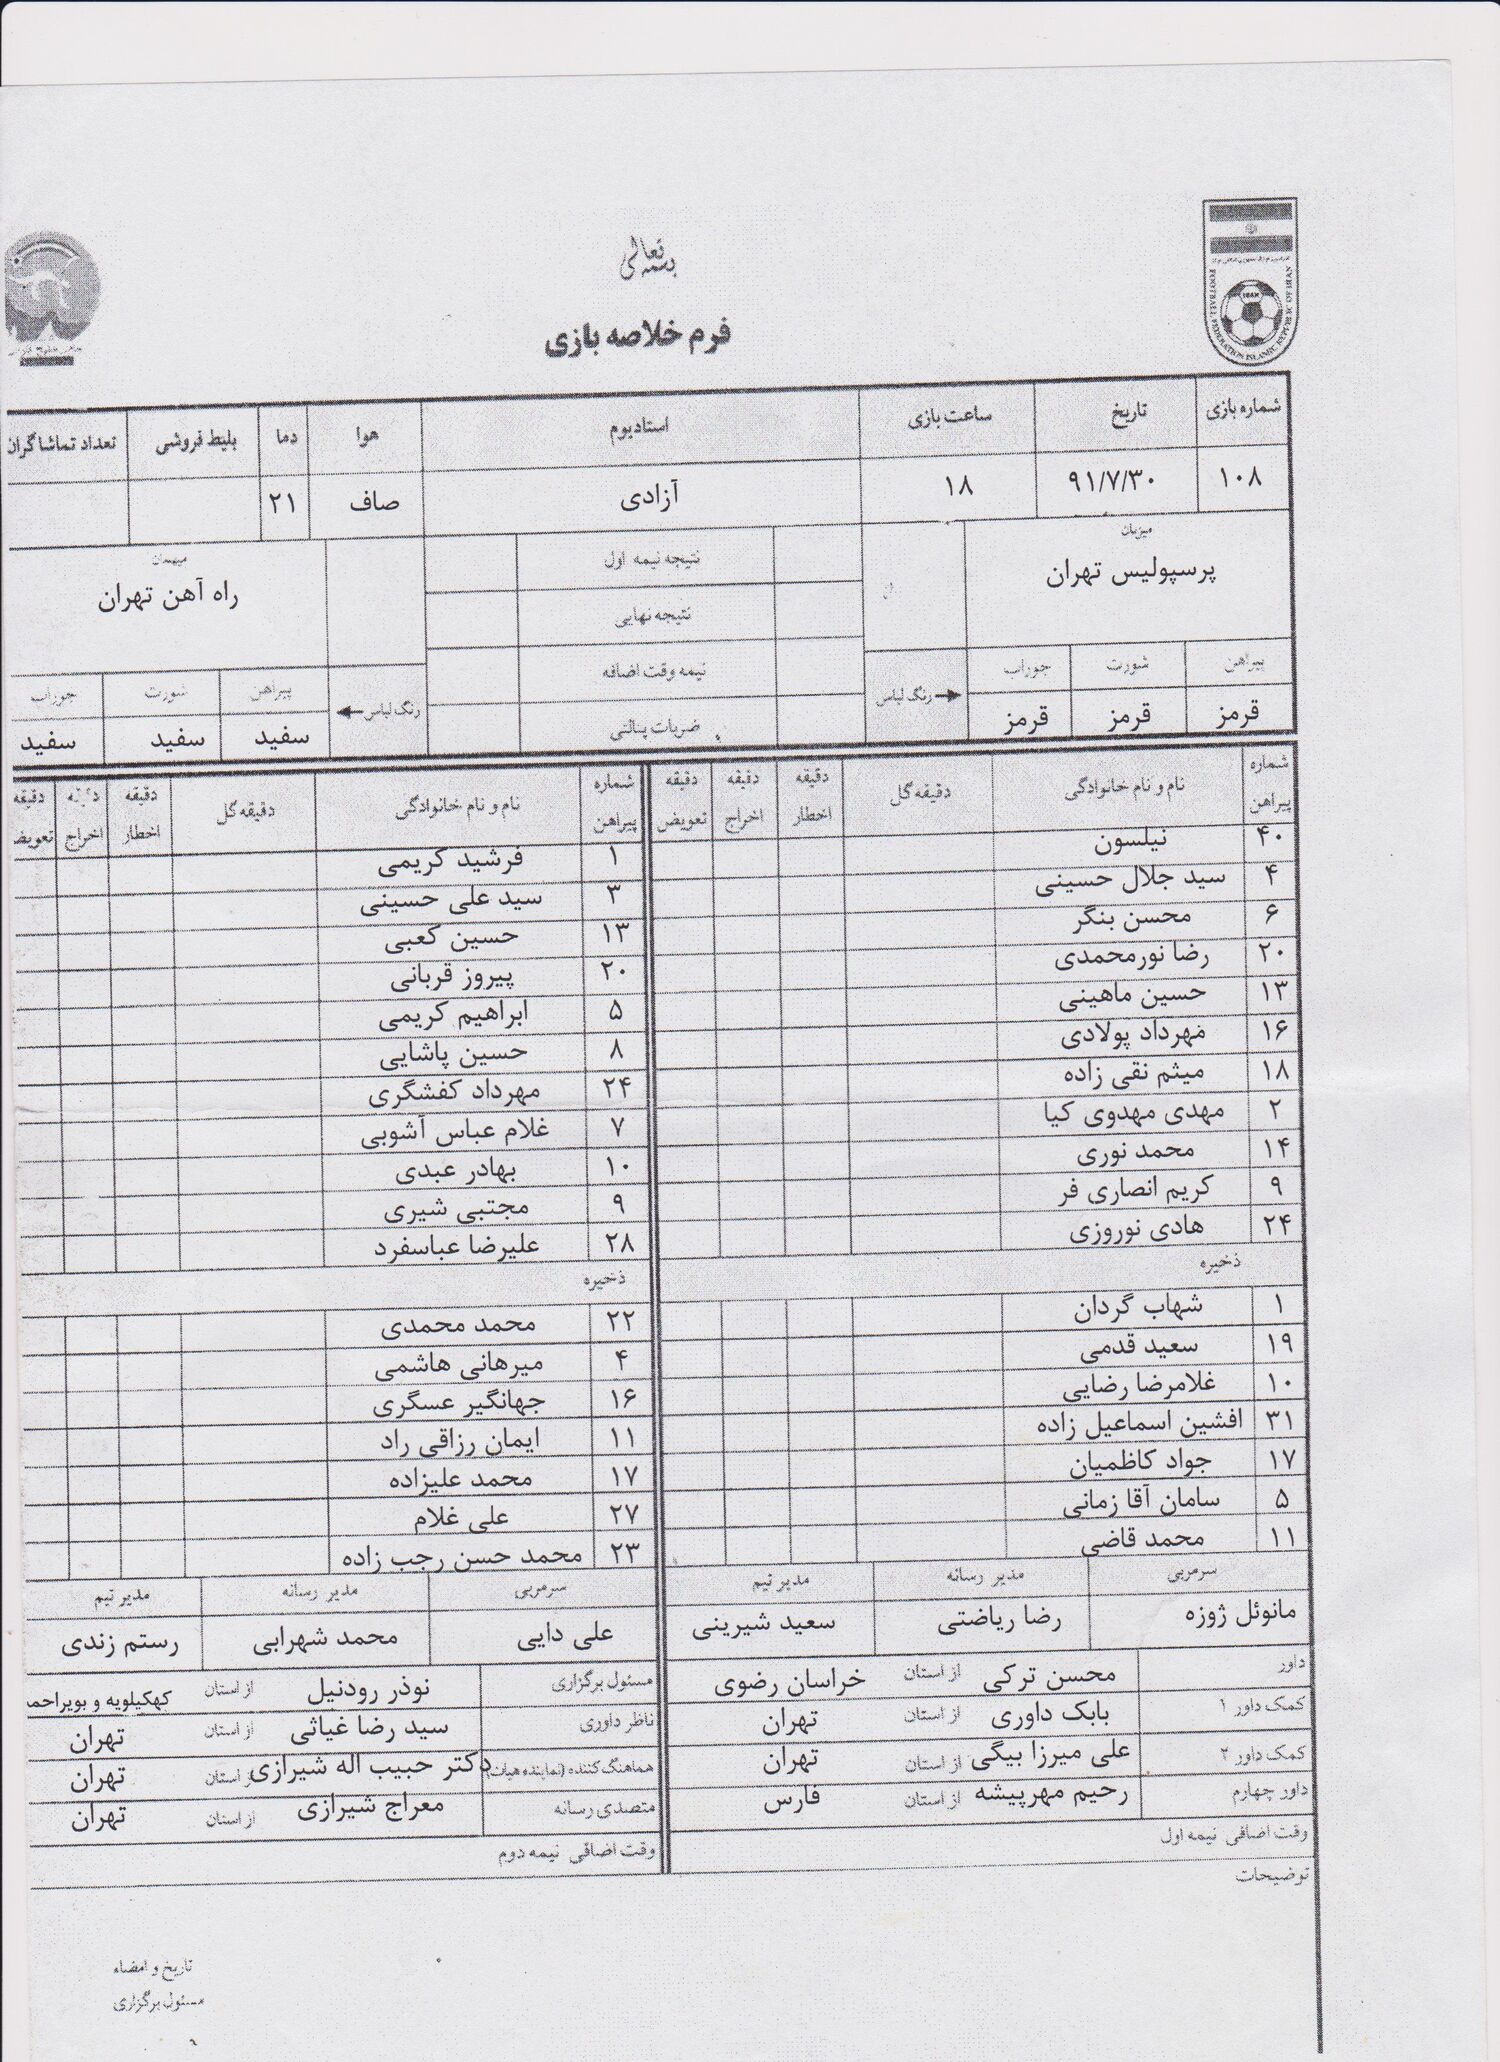 بسمه تعالی
فرم خلاصه بازی
FOOTBALL FEDERATION ISLAMIC REPUBLIC OF IRAN
شماره بازی تاریخ ساعت بازی استادیوم هوا دما بلیط فروشی تعداد تماشاگران
۱۰۸ ۹۱/۷/۳۰ ۱۸ آزادی صاف ۲۱
میزبان
پرسپولیس تهران
نتیجه نیمه اول
نتیجه نهایی
نیمه وقت اضافه
ضربات پنالتی
میهمان
راه آهن تهران
پیراهن شورت جوراب رنگ لباس
قرمز قرمز قرمز
رنگ لباس پیراهن شورت جوراب
سفید سفید سفید
شماره پیراهن نام و نام خانوادگی دقیقه گل دقیقه اخطار دقیقه اخراج دقیقه تعویض
۴۰ نیلسون
۴ سید جلال حسینی
۶ محسن بنگر
۲۰ رضا نورمحمدی
۱۳ حسین ماهینی
۱۶ مهرداد پولادی
۱۸ میثم نقی زاده
۲ مهدی مهدوی کیا
۱۴ محمد نوری
۹ کریم انصاری فر
۲۴ هادی نوروزی
ذخیره
۱ شهاب گردان
۱۹ سعید قدمی
۱۰ غلامرضا رضایی
۳۱ افشین اسماعیل زاده
۱۷ جواد کاظمیان
۵ سامان آقا زمانی
۱۱ محمد قاضی
سرمربی مدیر رسانه مدیر تیم
مانوئل ژوزه رضا ریاضتی سعید شیرینی
شماره پیراهن نام و نام خانوادگی دقیقه گل دقیقه اخطار دقیقه اخراج دقیقه تعویض
۱ فرشید کریمی
۳ سید علی حسینی
۱۳ حسین کعبی
۲۰ پیروز قربانی
۵ ابراهیم کریمی
۸ حسین پاشایی
۲۴ مهرداد کفشگری
۷ غلام عباس آشوبی
۱۰ بهادر عبدی
۹ مجتبی شیری
۲۸ علیرضا عباسفرد
ذخیره
۲۲ محمد محمدی
۴ میرهانی هاشمی
۱۶ جهانگیر عسگری
۱۱ ایمان رزاقی راد
۱۷ محمد علیزاده
۲۷ علی غلام
۲۳ محمد حسن رجب زاده
سرمربی مدیر رسانه مدیر تیم
علی دایی محمد شهرابی رستم زندی
داور محسن ترکی از استان خراسان رضوی
کمک داور ۱ بابک داوری از استان تهران
کمک داور ۲ علی میرزا بیگی از استان تهران
داور چهارم رحیم مهرپیشه از استان فارس
وقت اضافی نیمه اول
مسئول برگزاری نوذر رودنیل از استان کهکیلویه و بویراحمد
ناظر داوری سید رضا غیاثی از استان تهران
هماهنگ کننده (نماینده هیات) دکتر حبیب اله شیرازی از استان تهران
متصدی رسانه معراج شیرازی از استان تهران
وقت اضافی نیمه دوم
توضیحات
تاریخ و امضاء
مسئول برگزاری